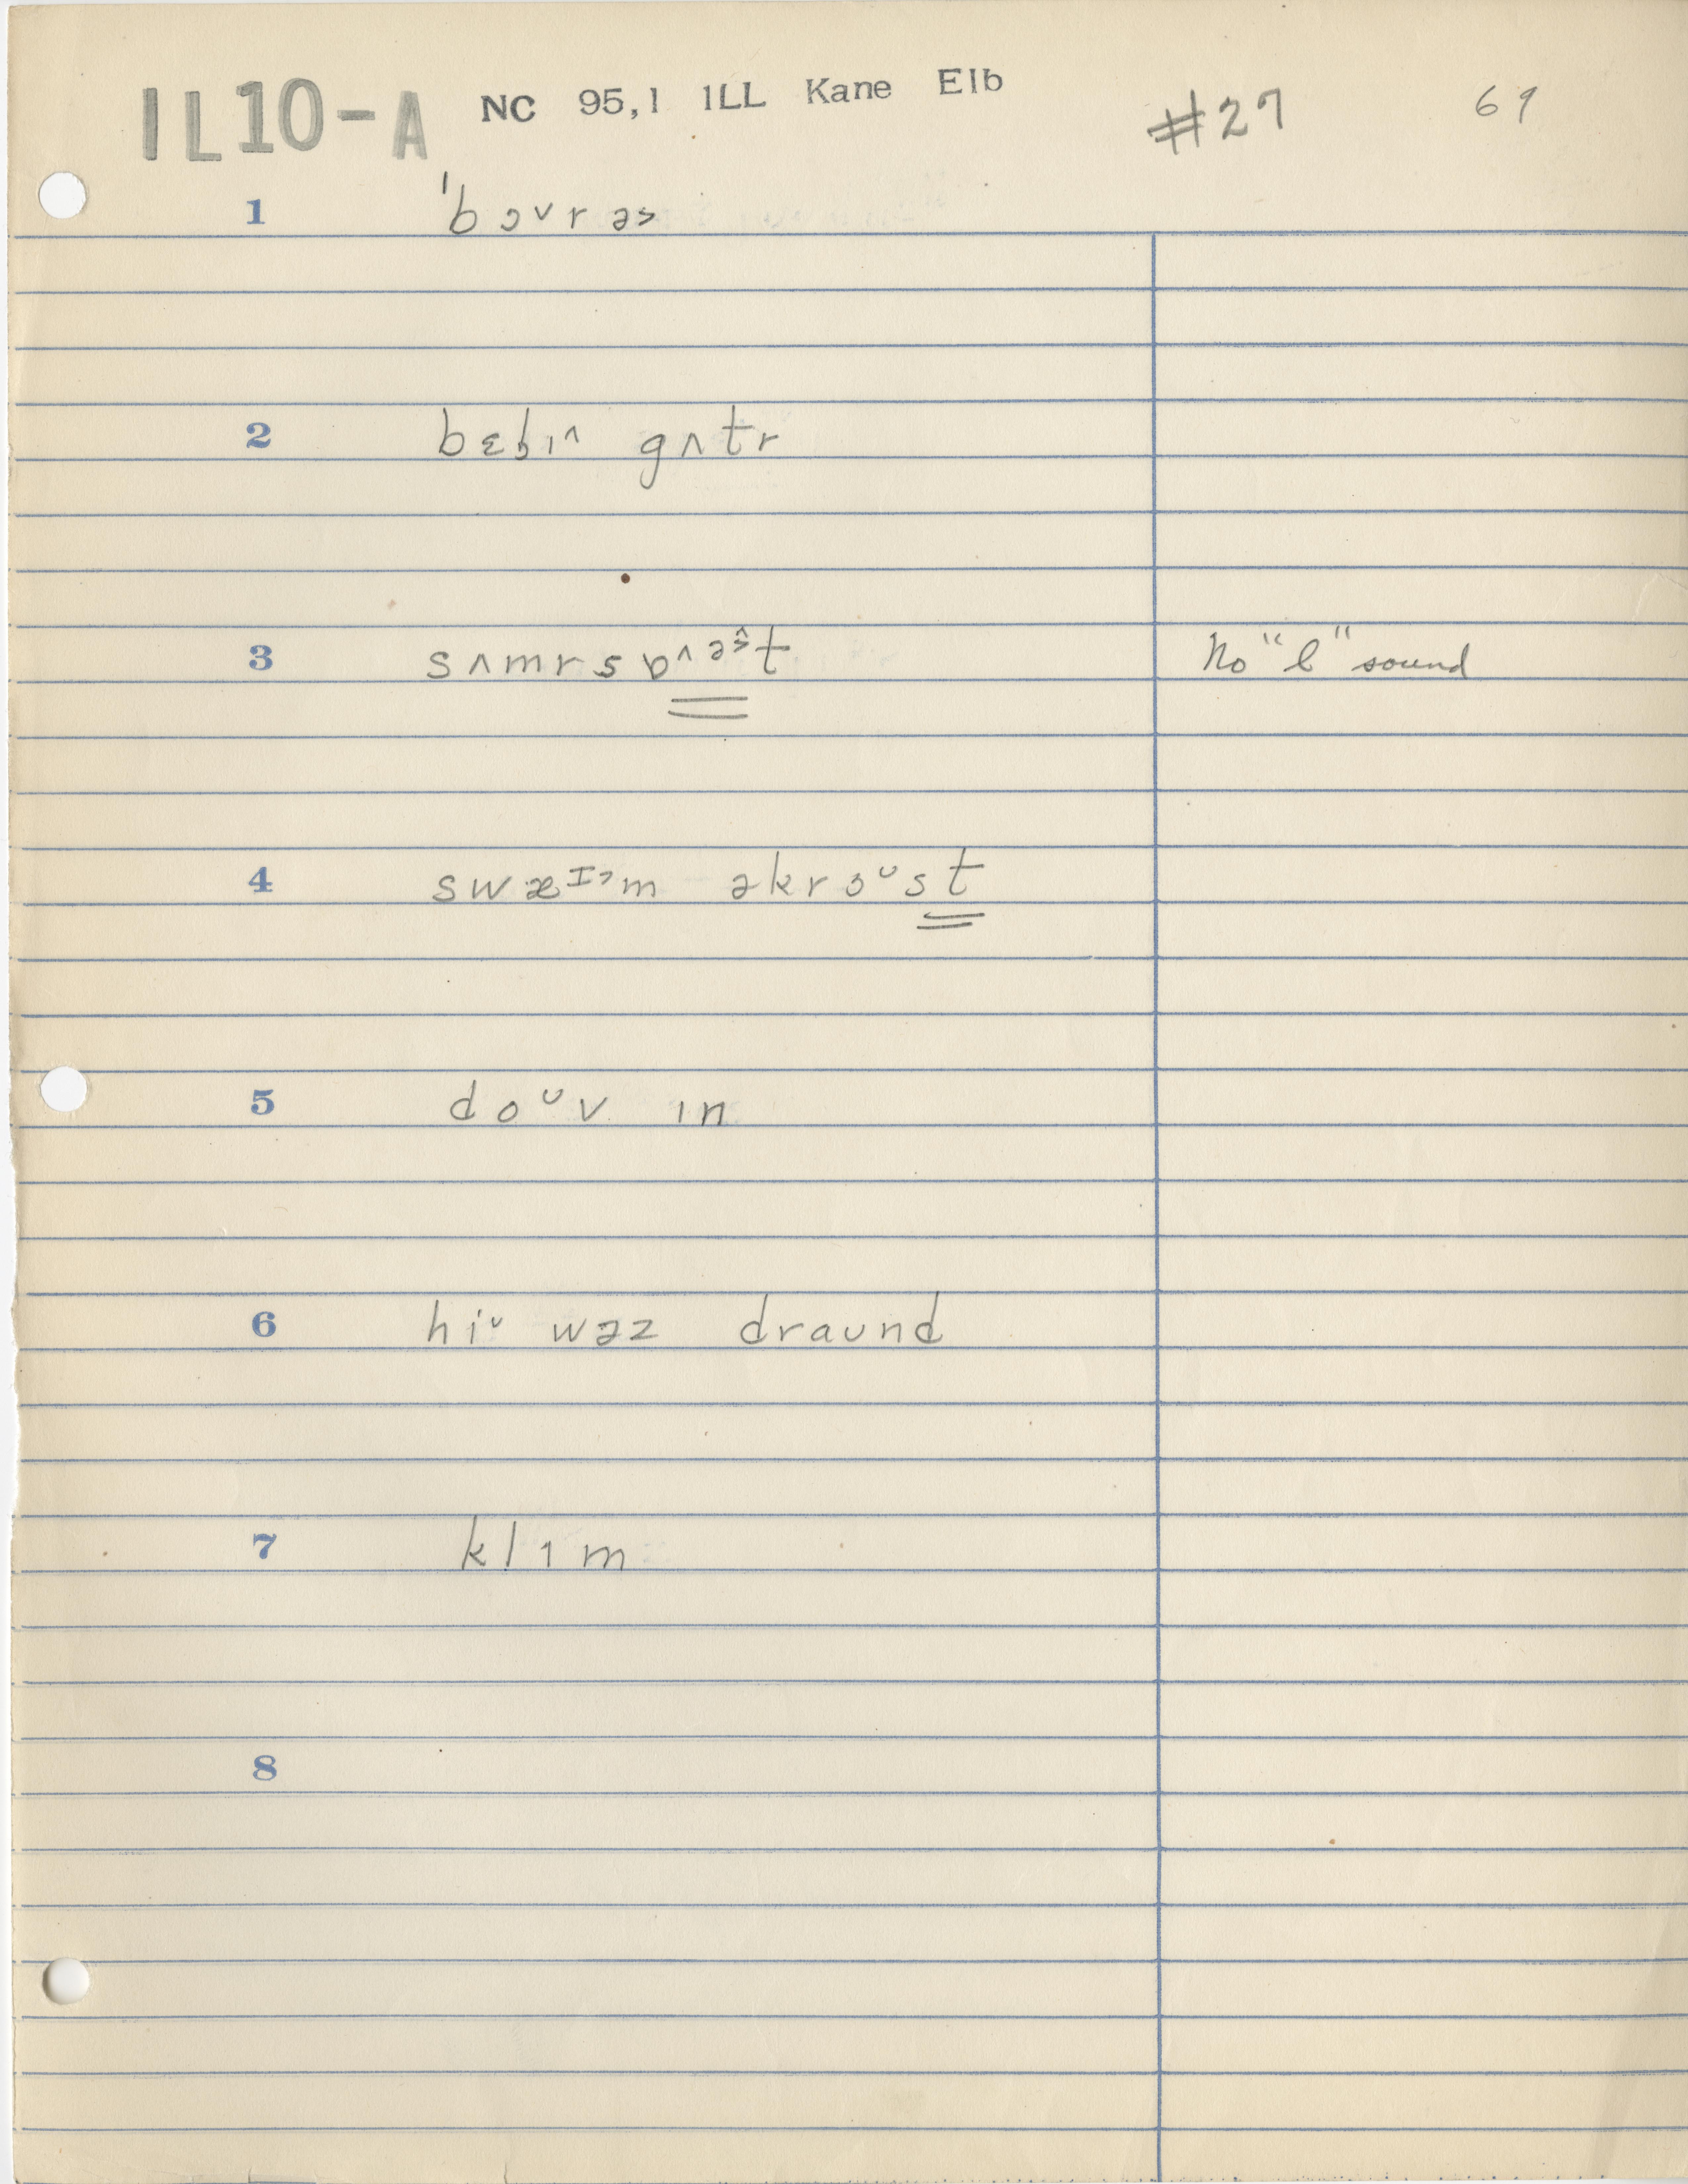 IL10-A NC 95,1 ILL Kane Elb #27 69
1 ˈbɔ˅rə˃
2 bɛb̡ɪ˄ gʌtr
3 sʌmrsɒ˄ə˃̂t No "l" sound
4 swæɪ˃m əkrɔᴜst
5 doᴜv ɪn
6 hi˅ wəz draᴜnd
7 klɪm
8